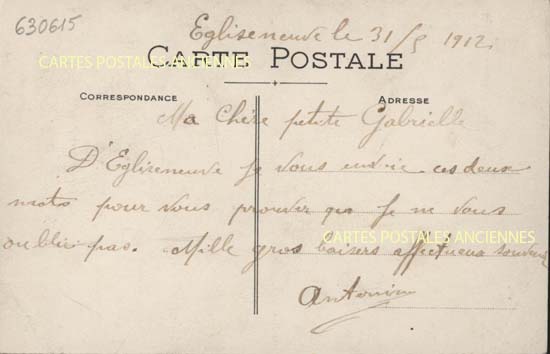 630615
Egliseneuve le 31/5 1912
CARTE POSTALE
CARTES POSTALES ANCIENNES
CORRESPONDANCE
ADRESSE
Ma Chère petite Gabrielle
D'Egliseneuve je vous envoie ces deux
mots pour vous prouver que je ne vous
oublie pas. Mille gros baisers affectueux souvenirs
CARTES POSTALES ANCIENNES
Antonin